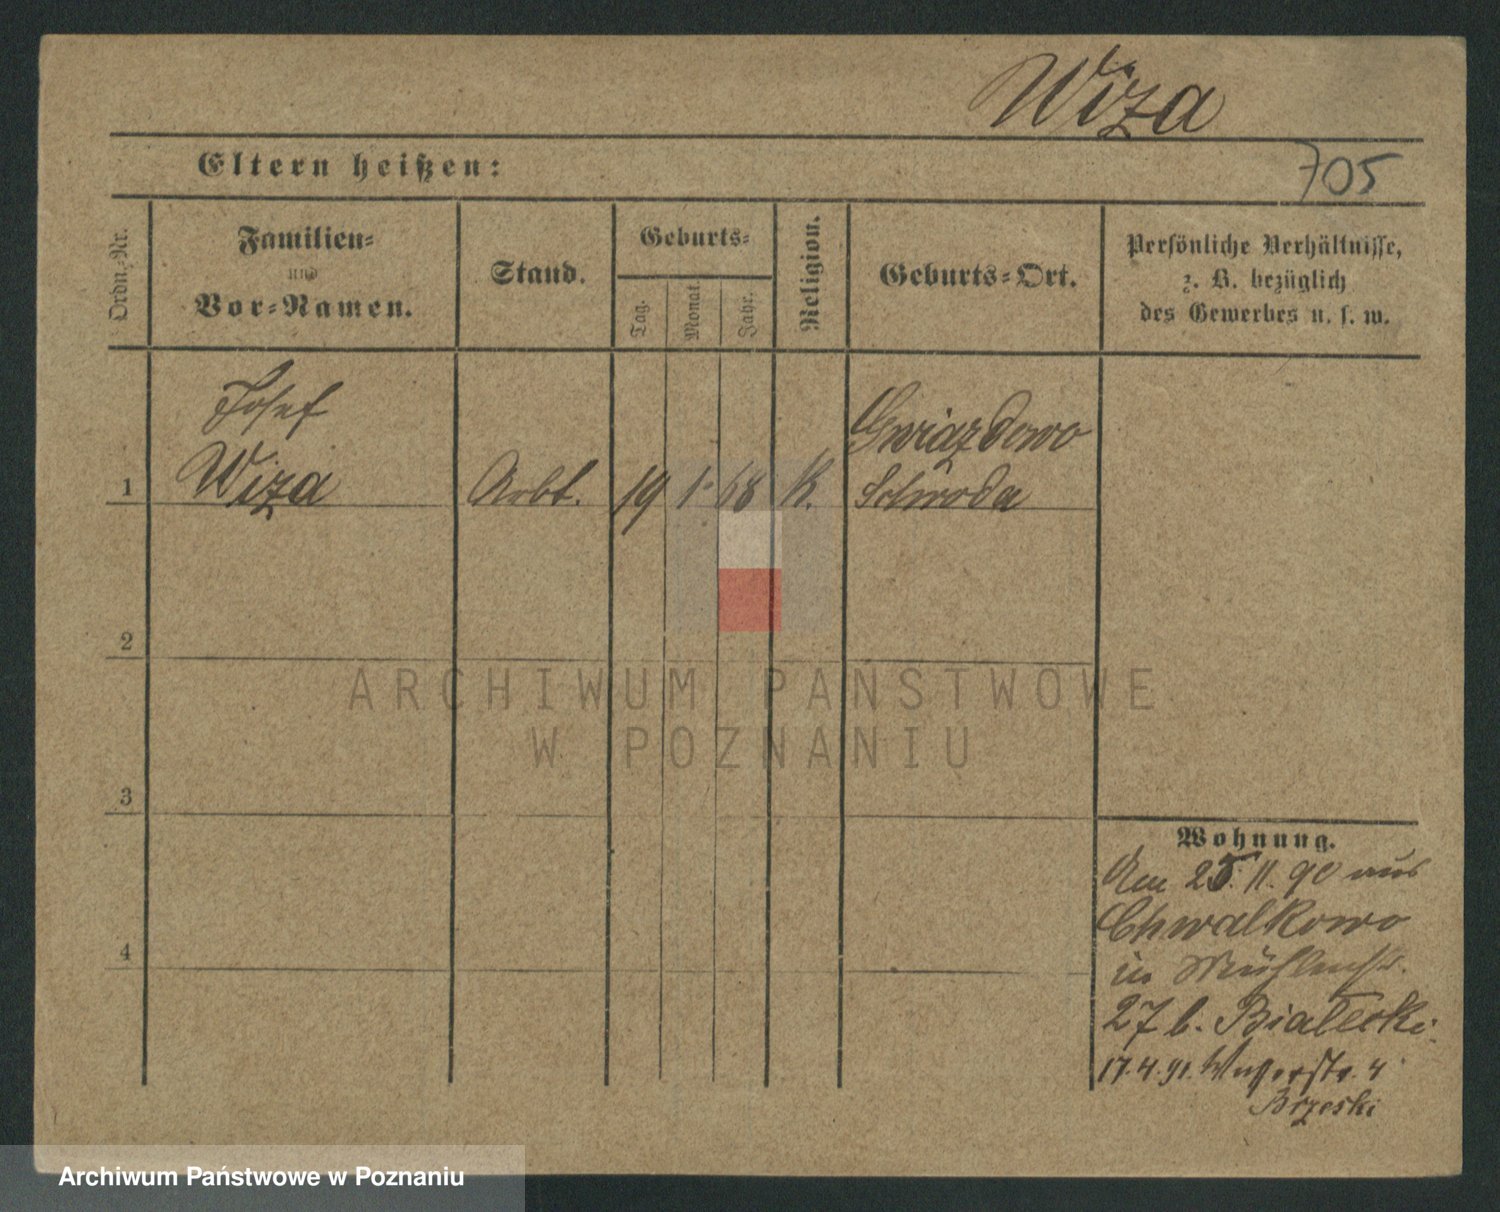 Wiza
705
Eltern heißen:
Ordn.-Nr.
Familien-
und
Vor-Namen.
Stand.
Geburts-
Tag.
Monat.
Jahr.
Religion.
Geburts-Ort.
Persönliche Verhältnisse,
z. B. bezüglich
des Gewerbes u. s. w.
Josef
Wiza
Gwiazdowo
1
Arbt. 19 1. 68 K.
Schroda
2
ARCHIWUM PAŃSTWOWE
W POZNANIU
3
Wohnung.
Am 25. 11. 90 aus
Chwalkowo
in Mühlenstr.
4
27 b. Bialecki.
17.4.91. 4
Brzeski
Archiwum Państwowe w Poznaniu